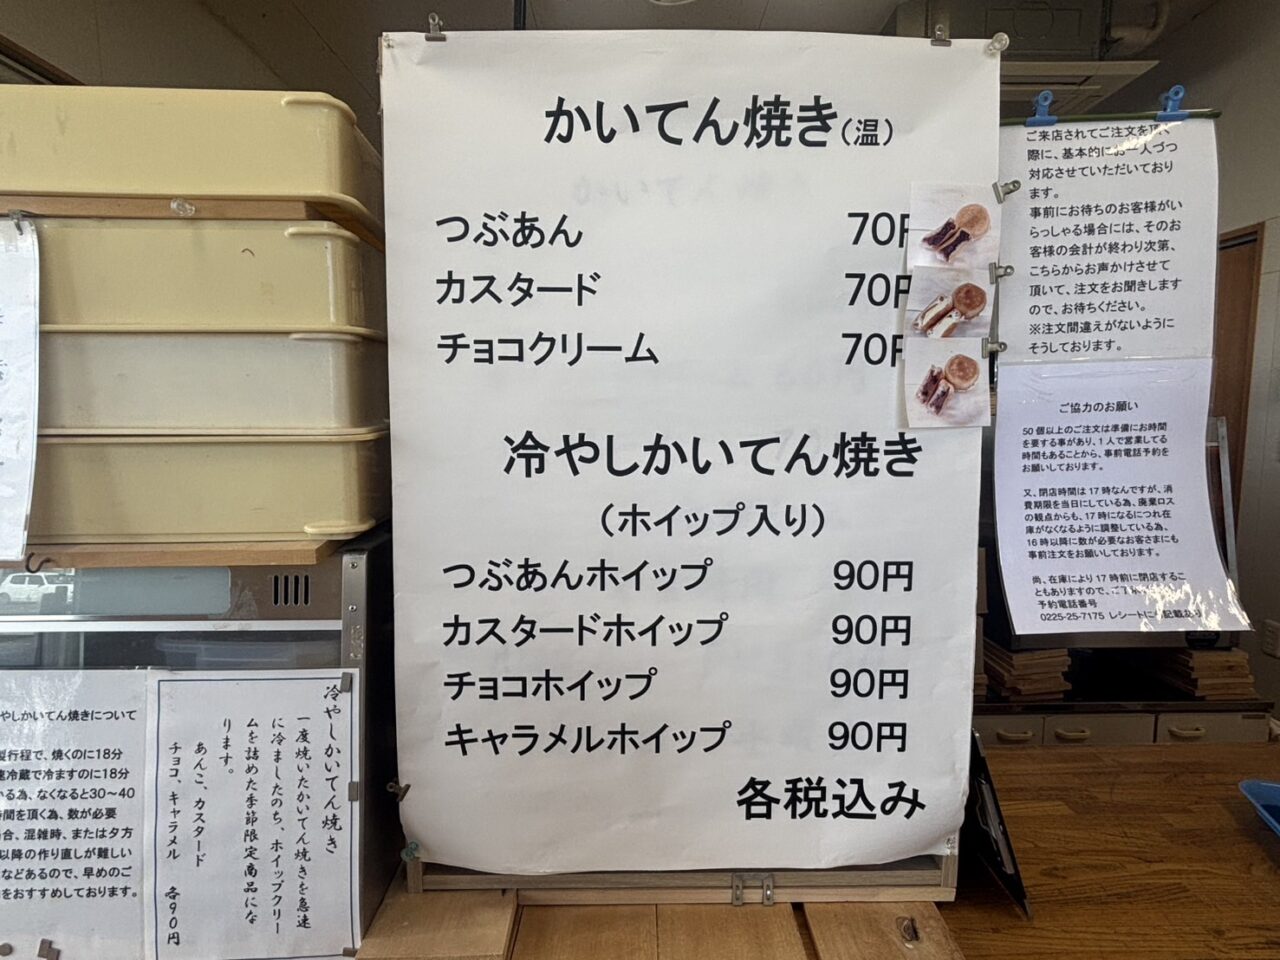 かいてん焼き(温)
つぶあん 70円
カスタード 70円
チョコクリーム 70円
冷やしかいてん焼き
(ホイップ入り)
つぶあんホイップ 90円
カスタードホイップ 90円
チョコホイップ 90円
キャラメルホイップ 90円
各税込み
ご来店されてご注文を頂く
際に、基本的にお一人づつ
対応させていただいており
ます。
事前にお待ちのお客様がい
らっしゃる場合には、そのお
客様の会計が終わり次第、
こちらからお声かけさせて
頂いて、注文をお聞きします
ので、お待ちください。
※注文間違えがないように
そうしております。
ご協力のお願い
50個以上のご注文は準備にお時間
を要する事があり、1人で営業してる
時間もあることから、事前電話予約を
お願いしております。
又、閉店時間は17時なんですが、消
費期限を当日にしている為、廃棄ロス
の観点からも、17時になるにつれ在
庫がなくなるように調整している為、
16時以降に数が必要なお客さまにも
事前注文をお願いしております。
尚、在庫により17時前に閉店するこ
ともありますので、ご了承
予約電話番号
0225-25-7175 レシートにも記載あり
冷やしかいてん焼き
一度焼いたかいてん焼きを急速
に冷ましたのち、ホイップクリー
ムを詰めた季節限定商品にな
ります。
あんこ、カスタード
チョコ、キャラメル 各90円
やしかいてん焼きについて
製行程で、焼くのに18分
速冷蔵で冷ますのに18分
かる為、なくなると30〜40
時間を頂く為、数が必要
合、混雑時、または夕方
以降の作り直しが難しい
などあるので、早めのご
をおすすめしております。